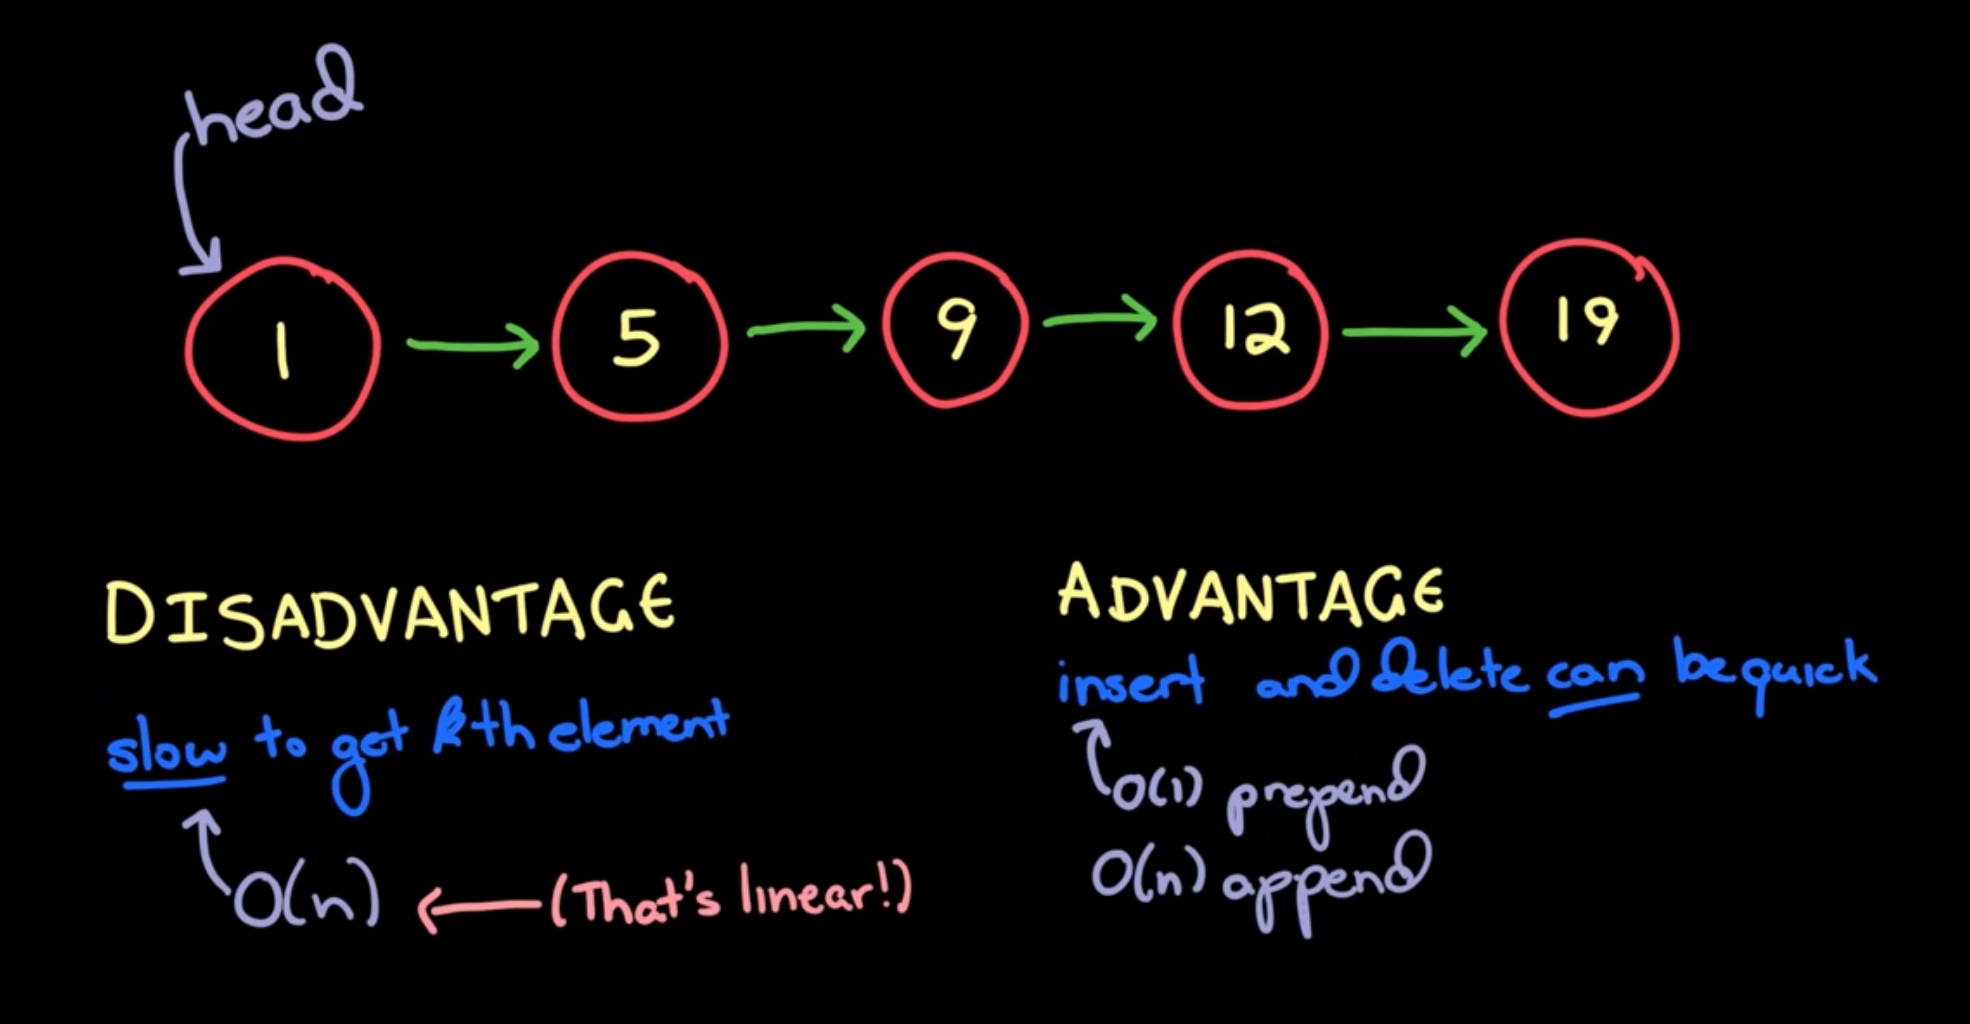 head
1 → 5 → 9 → 12 → 19
DISADVANTAGE
slow to get kth element
O(n) ← (That's linear!)
ADVANTAGE
insert and delete can be quick
O(1) prepend
O(n) append